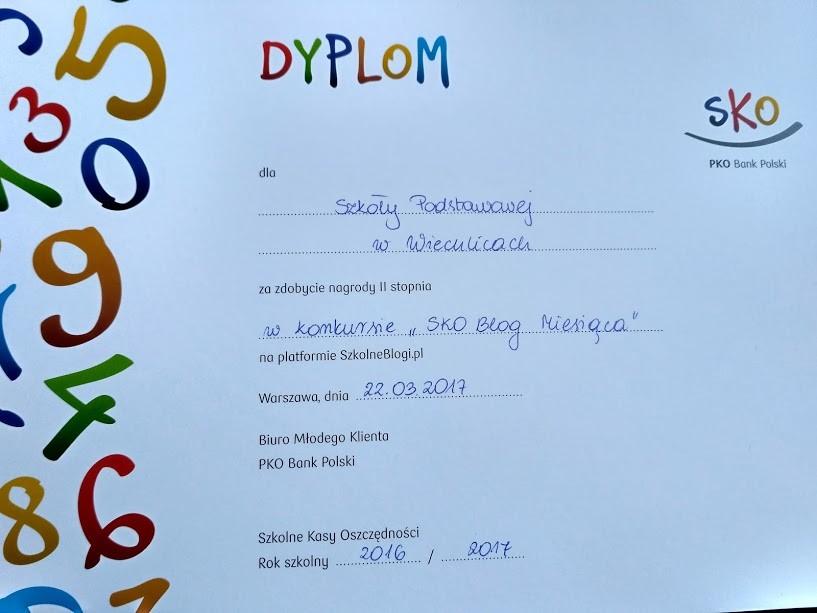 DYPLOM
SKO
PKO Bank Polski
dla
Szkoły Podstawowej
w Wiechlicach
za zdobycie nagrody II stopnia
w konkursie „SKO Blog Miesiąca"
na platformie SzkolneBlogi.pl
Warszawa, dnia 22.03.2017
Biuro Młodego Klienta
PKO Bank Polski
Szkolne Kasy Oszczędności
Rok szkolny 2016 / 2017
5
3
0
9
4
8
6